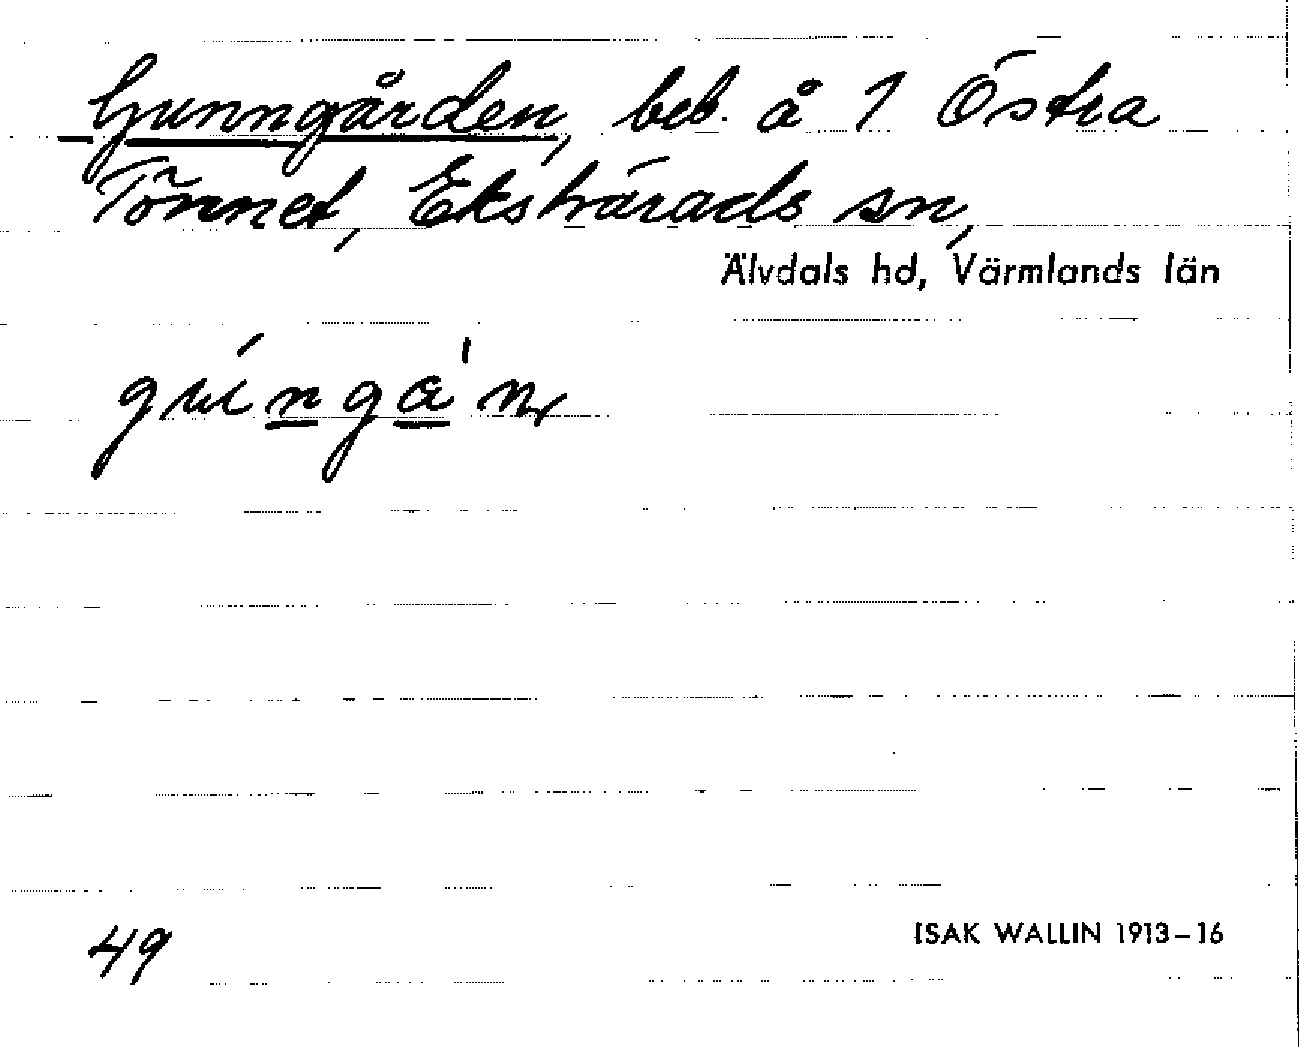 Gunngården, beb. å 1 Östra
Tönnet, Ekshärads sn,
Älvdals hd, Värmlands län
gúngá'n
49
ISAK WALLIN 1913–16